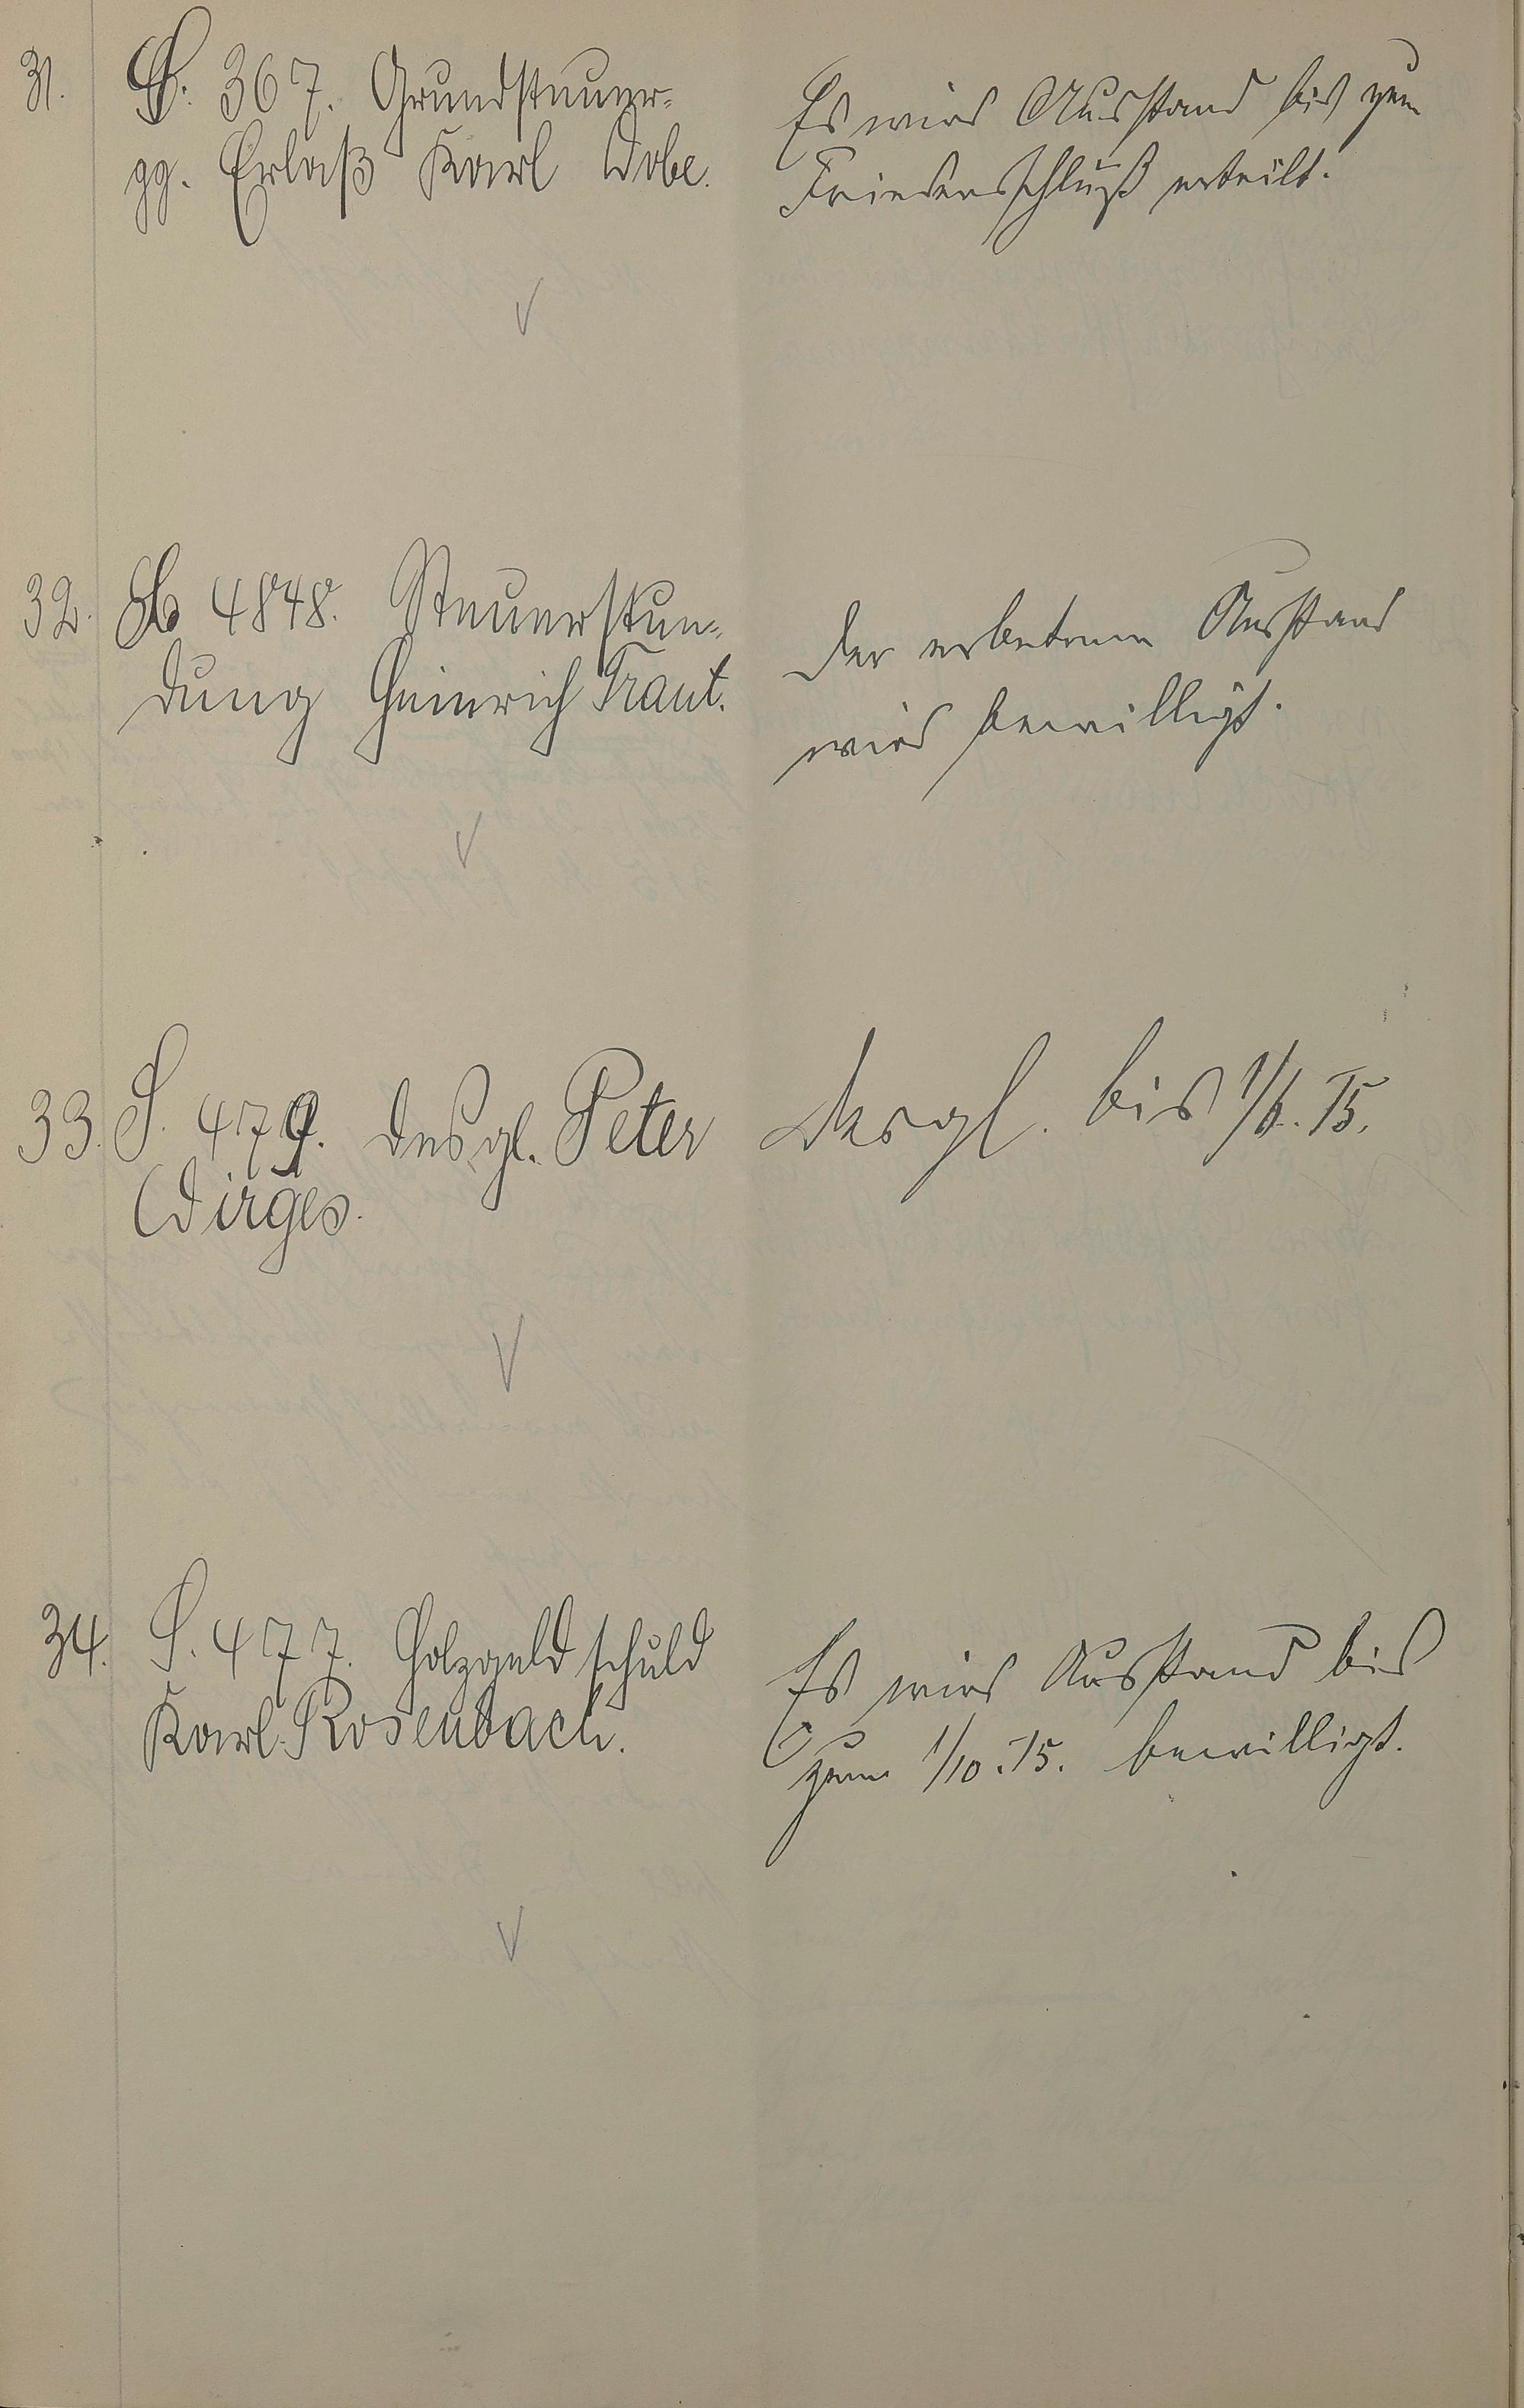 31. S. 367. Grundsteuer-
gg. Erlaß Karl Dobe.
Es wird Ausstand bis zum
Friedensschluß erteilt.
32. 4848. Steuerstun-
dung Heinrich Traut.
Der erbetene Ausstand
wird bewilligt.
33. S. 479. desgl. Peter
Dirges.
desgl. bis 1/6. 15.
34. S. 477. Holzgeldschuld
Karl Rosenbach.
Es wird Ausstand bis
zum 1/10. 15. bewilligt.